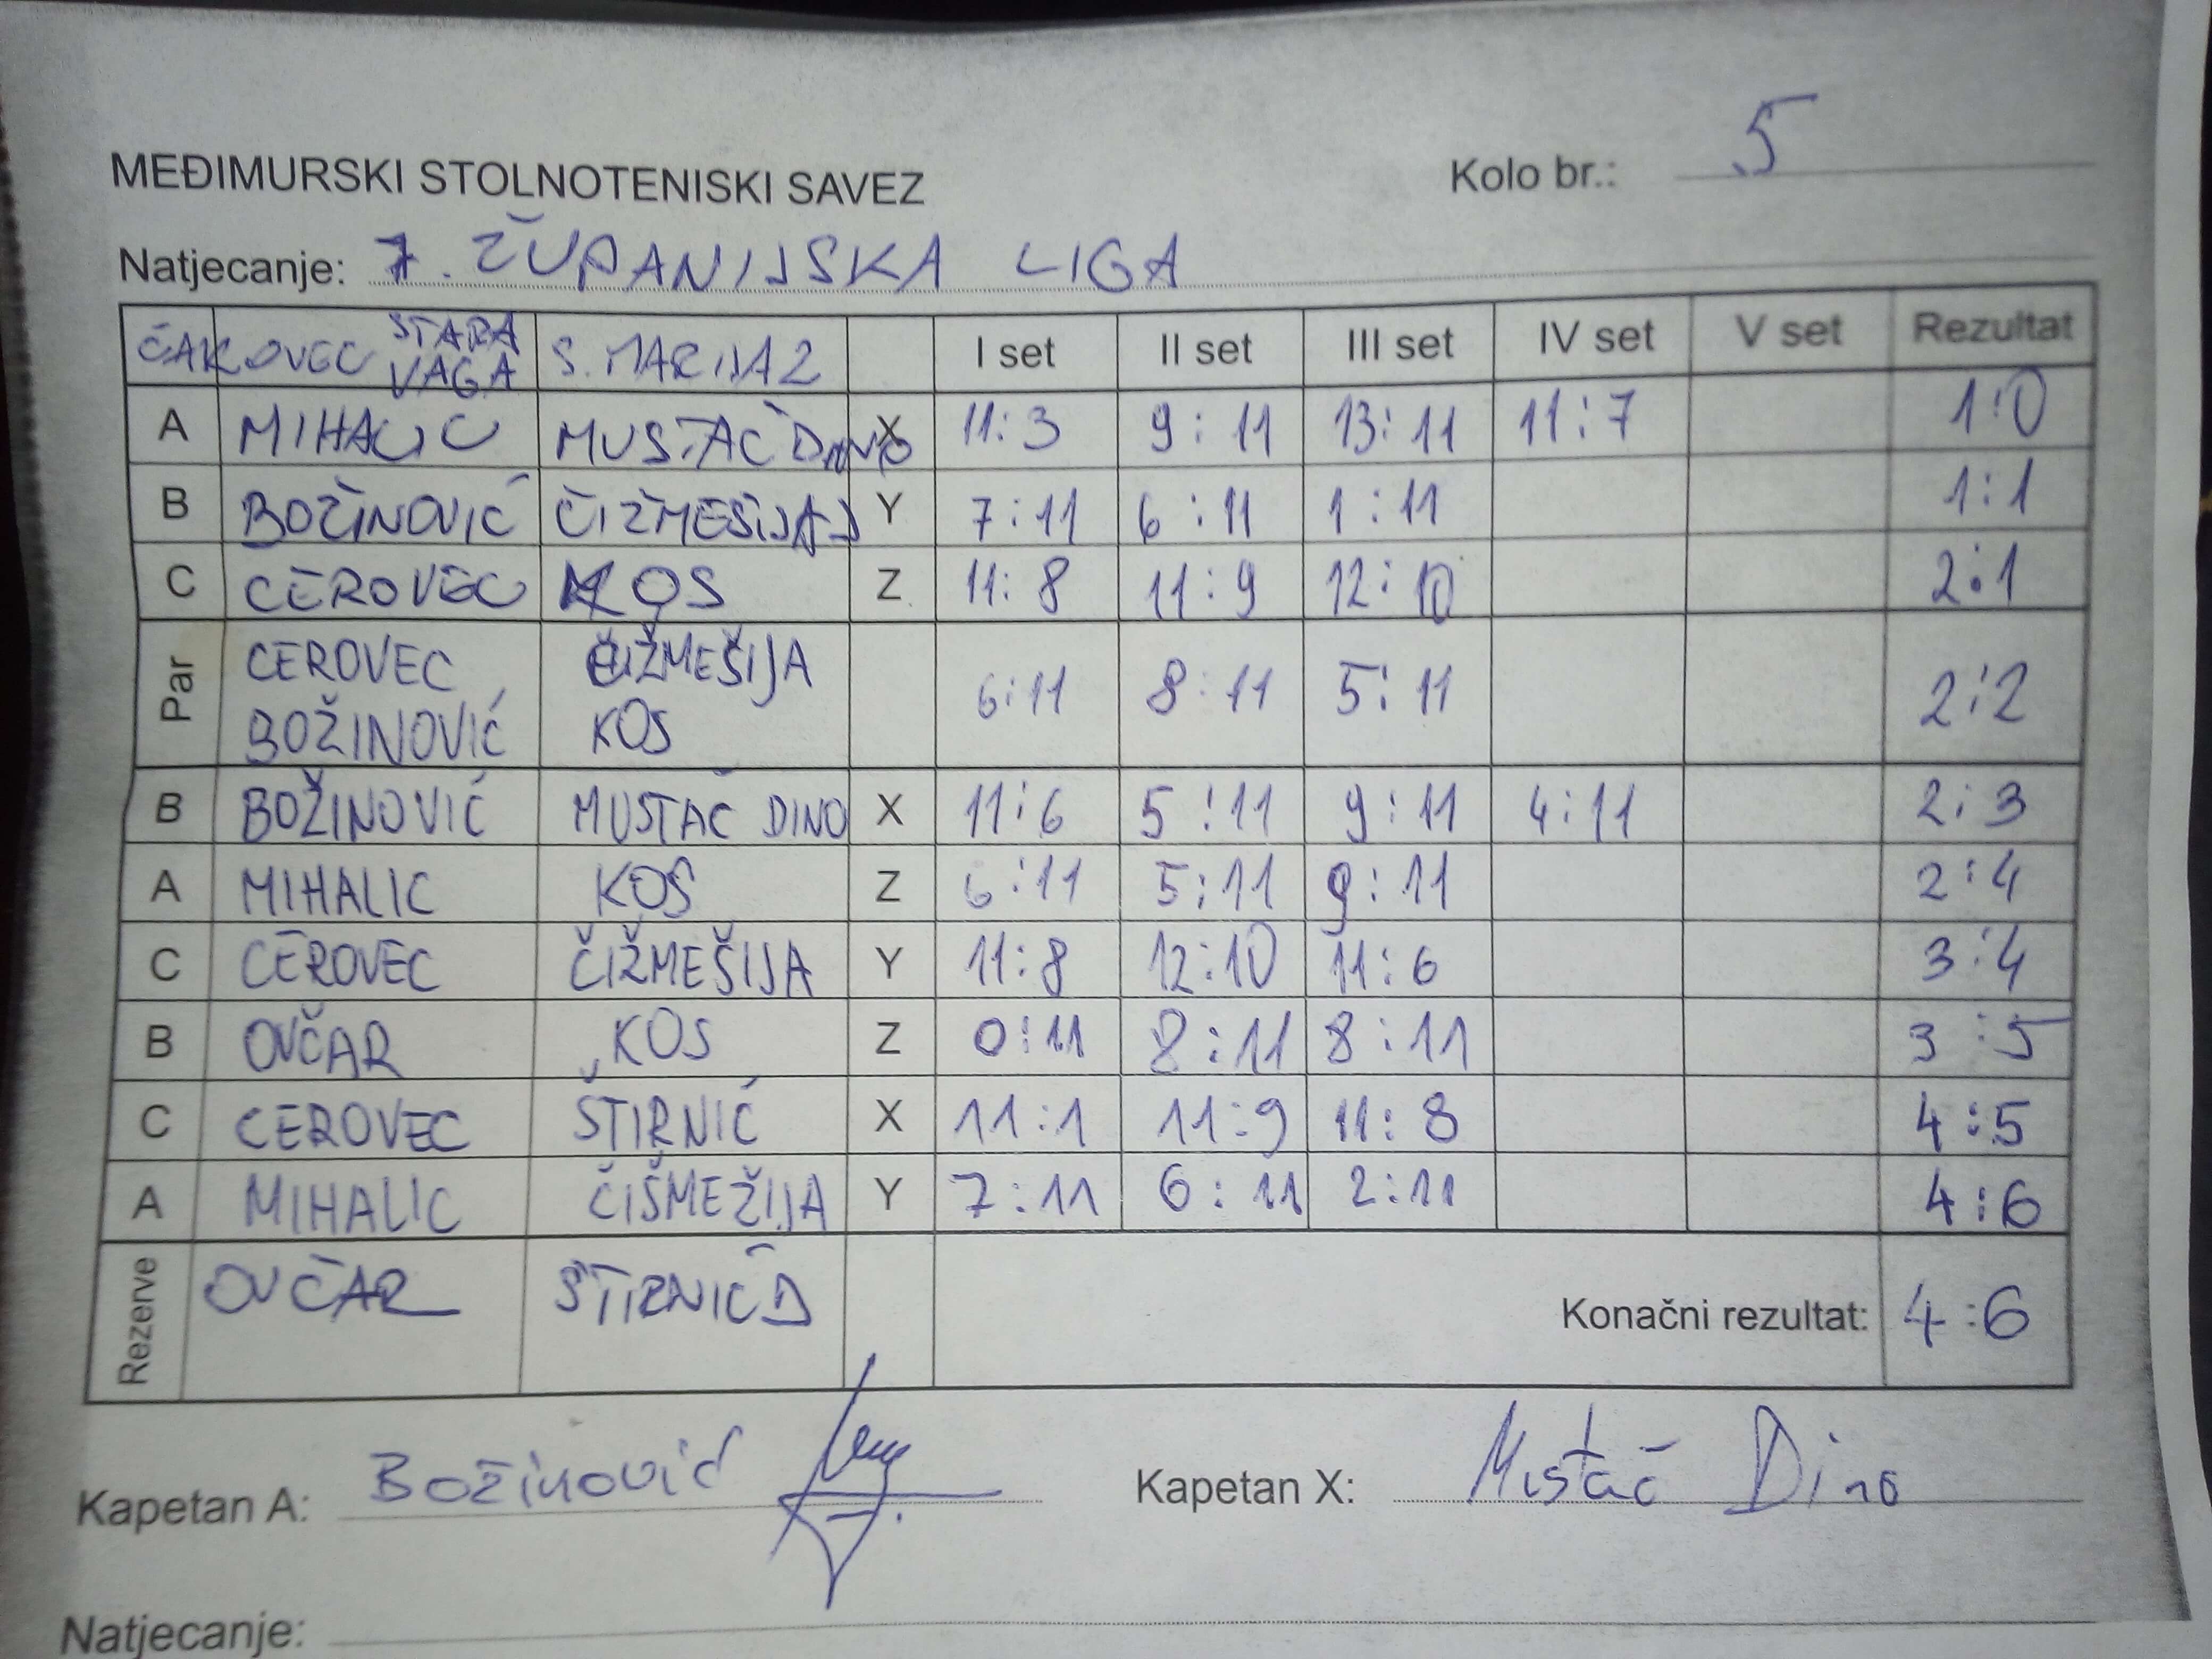 MEĐIMURSKI STOLNOTENISKI SAVEZ Kolo br.: 5
Natjecanje: 7. ŽUPANIJSKA LIGA
ČAKOVEC STARA VAGA S. MARIJA 2 I set II set III set IV set V set Rezultat
A MIHALIC MUSTAČ DINO X 11:3 9:11 13:11 11:7 1:0
B BOŽINOVIĆ ČIŽMEŠIJA D Y 7:11 6:11 1:11 1:1
C CEROVEC KOS Z 11:8 11:9 12:10 2:1
Par CEROVEC ČIŽMEŠIJA 6:11 8:11 5:11 2:2
BOŽINOVIĆ KOS
B BOŽINOVIĆ MUSTAČ DINO X 11:6 5:11 9:11 4:11 2:3
A MIHALIC KOS Z 6:11 5:11 9:11 2:4
C CEROVEC ČIŽMEŠIJA Y 11:8 12:10 11:6 3:4
B OVČAR KOS Z 0:11 8:11 8:11 3:5
C CEROVEC ŠTIRNIĆ X 11:1 11:9 11:8 4:5
A MIHALIC ČIŠMEŽIJA Y 7:11 6:11 2:11 4:6
Rezerve OVČAR ŠTIRNIĆ D Konačni rezultat: 4:6
Kapetan A: Božinović Kapetan X: Mustač Dino
Natjecanje: